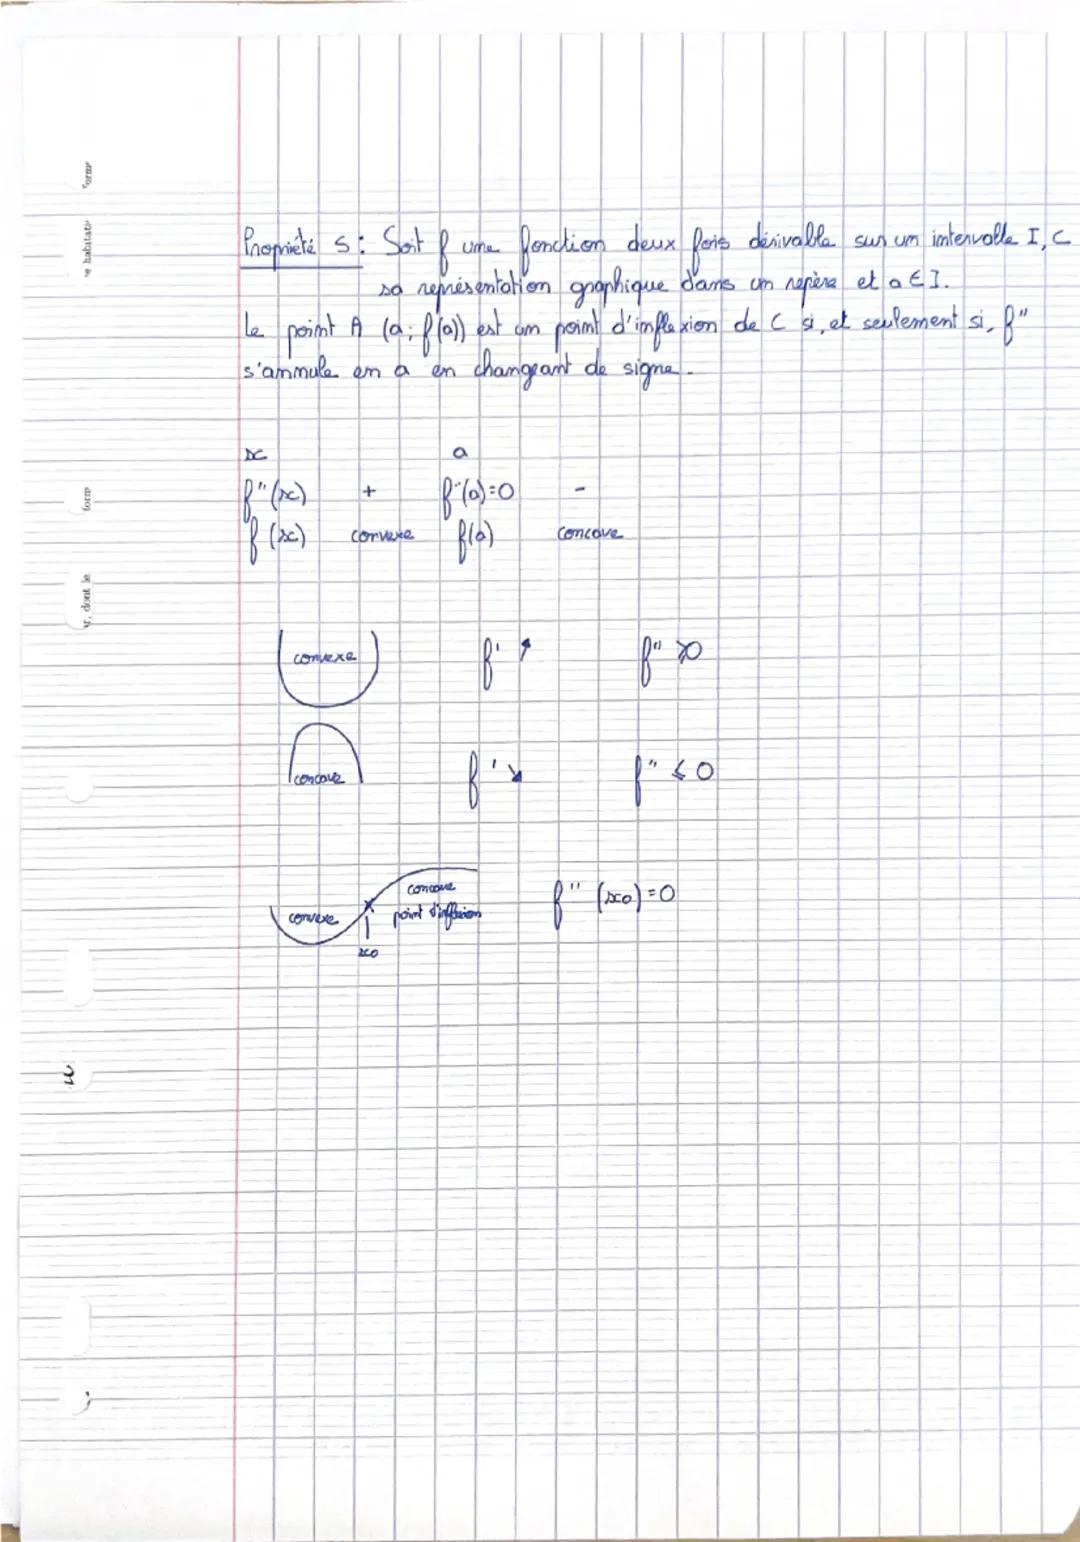 Propriété 5: Soit f une fonction deux fois dérivable sur un intervalle I, C
sa représentation graphique dans un repère et a ∈ I.
Le point A (a; f(a)) est un point d'inflexion de C si, et seulement si, f"
s'annule en a en changeant de signe.
x a
f"(x) + f"(a)=0 -
f(x) convexe f(a) concave
convexe f' ↗ f" ≥0
concave f' ↘ f" ≤ 0
concave
convexe point d'inflexion f"(x0)=0
x0
form
dont le